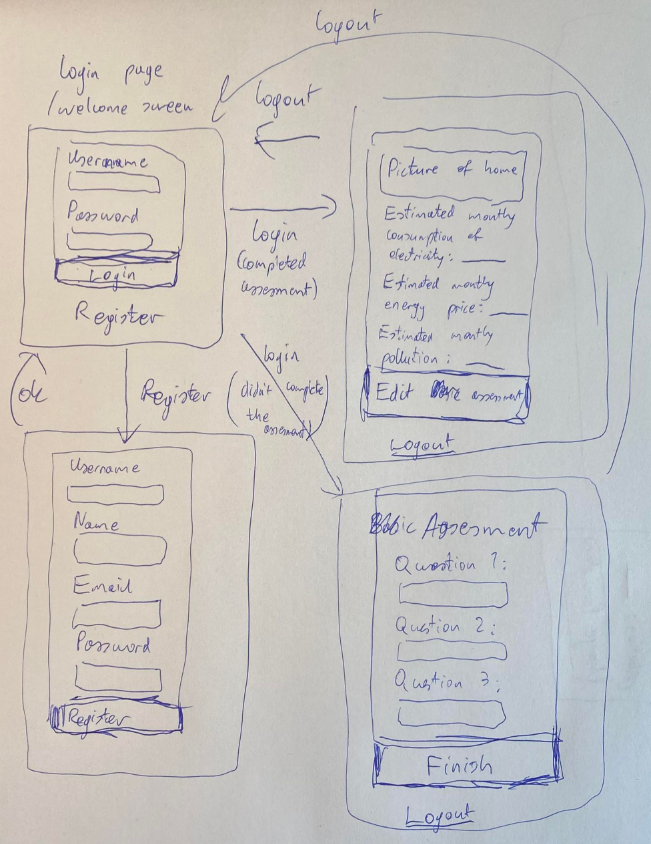 Logout
Login page
/welcome screen
Logout
Username
Password
Login
Register
Login
(completed
assesment)
Picture of home
Estimated monthly
consumption of
electricity: ____
Estimated monthly
energy price: ____
Estimated monthly
pollution : ____
Edit assesment
Logout
ok
Register
login
(didn't complete
the
assesment)
Username
Name
Email
Password
Register
Basic Assesment
Question 1:
Question 2:
Question 3:
Finish
Logout